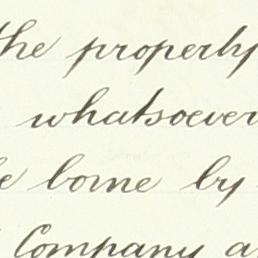 the property
whatsoever
be borne by
Company a